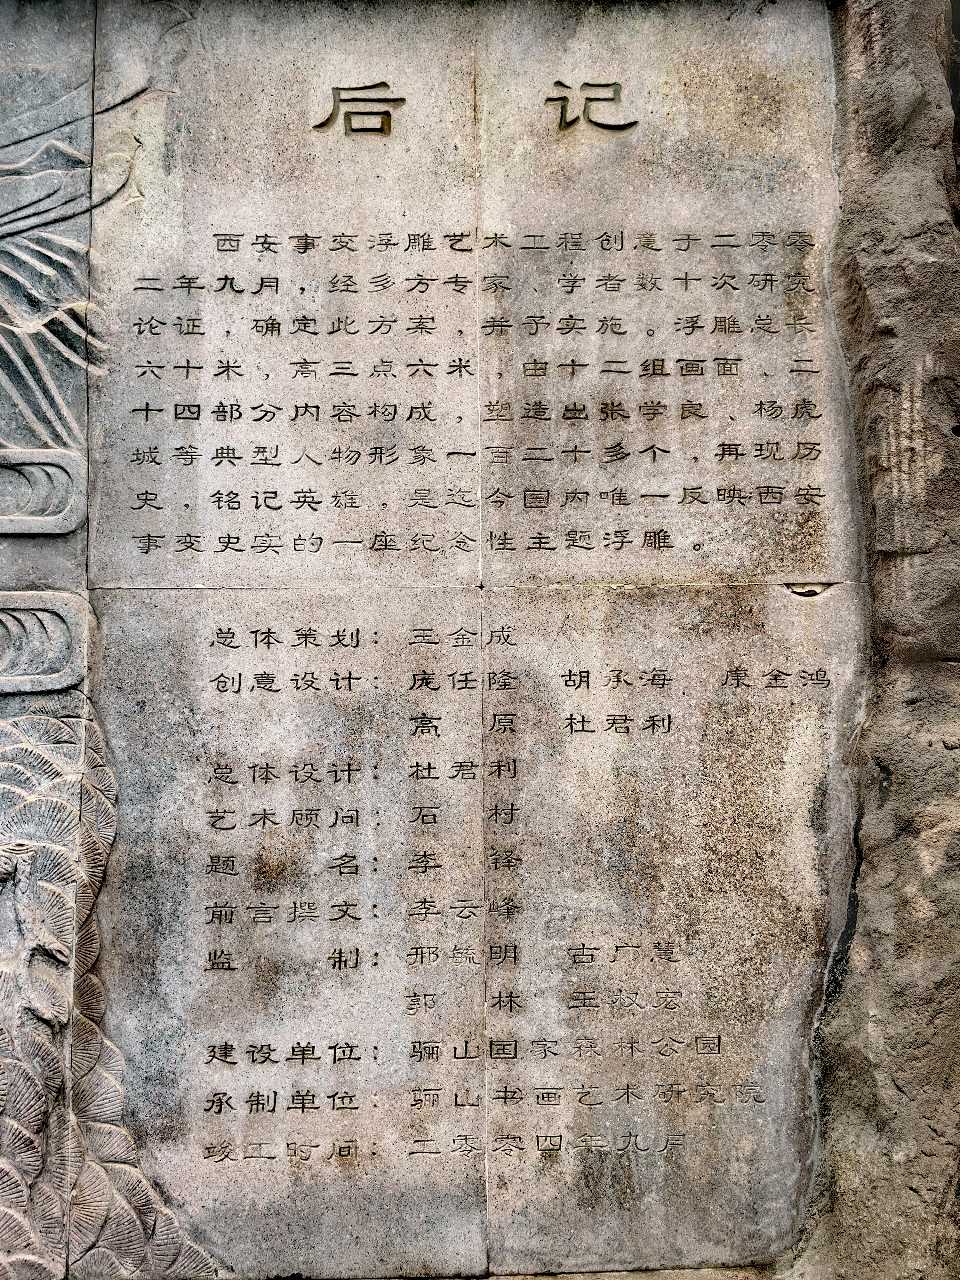 后 记
西安事变浮雕艺术工程创意于二零零
二年九月，经多方专家、学者数十次研究
论证，确定此方案，并予实施。浮雕总长
六十米，高三点六米，由十二组画面、二
十四部分内容构成，塑造出张学良、杨虎
城等典型人物形象一百二十多个，再现历
史，铭记英雄，是迄今国内唯一反映西安
事变史实的一座纪念性主题浮雕。
总体策划：王金成
创意设计：庞任隆 胡承海 康金鸿
高 原 杜君利
总体设计：杜君利
艺术顾问：石 村
题 名：李 铎
前言撰文：李云峰
监 制：邢毓明 古广慧
郭 林 王权宏
建设单位：骊山国家森林公园
承制单位：骊山书画艺术研究院
竣工时间：二零零四年九月